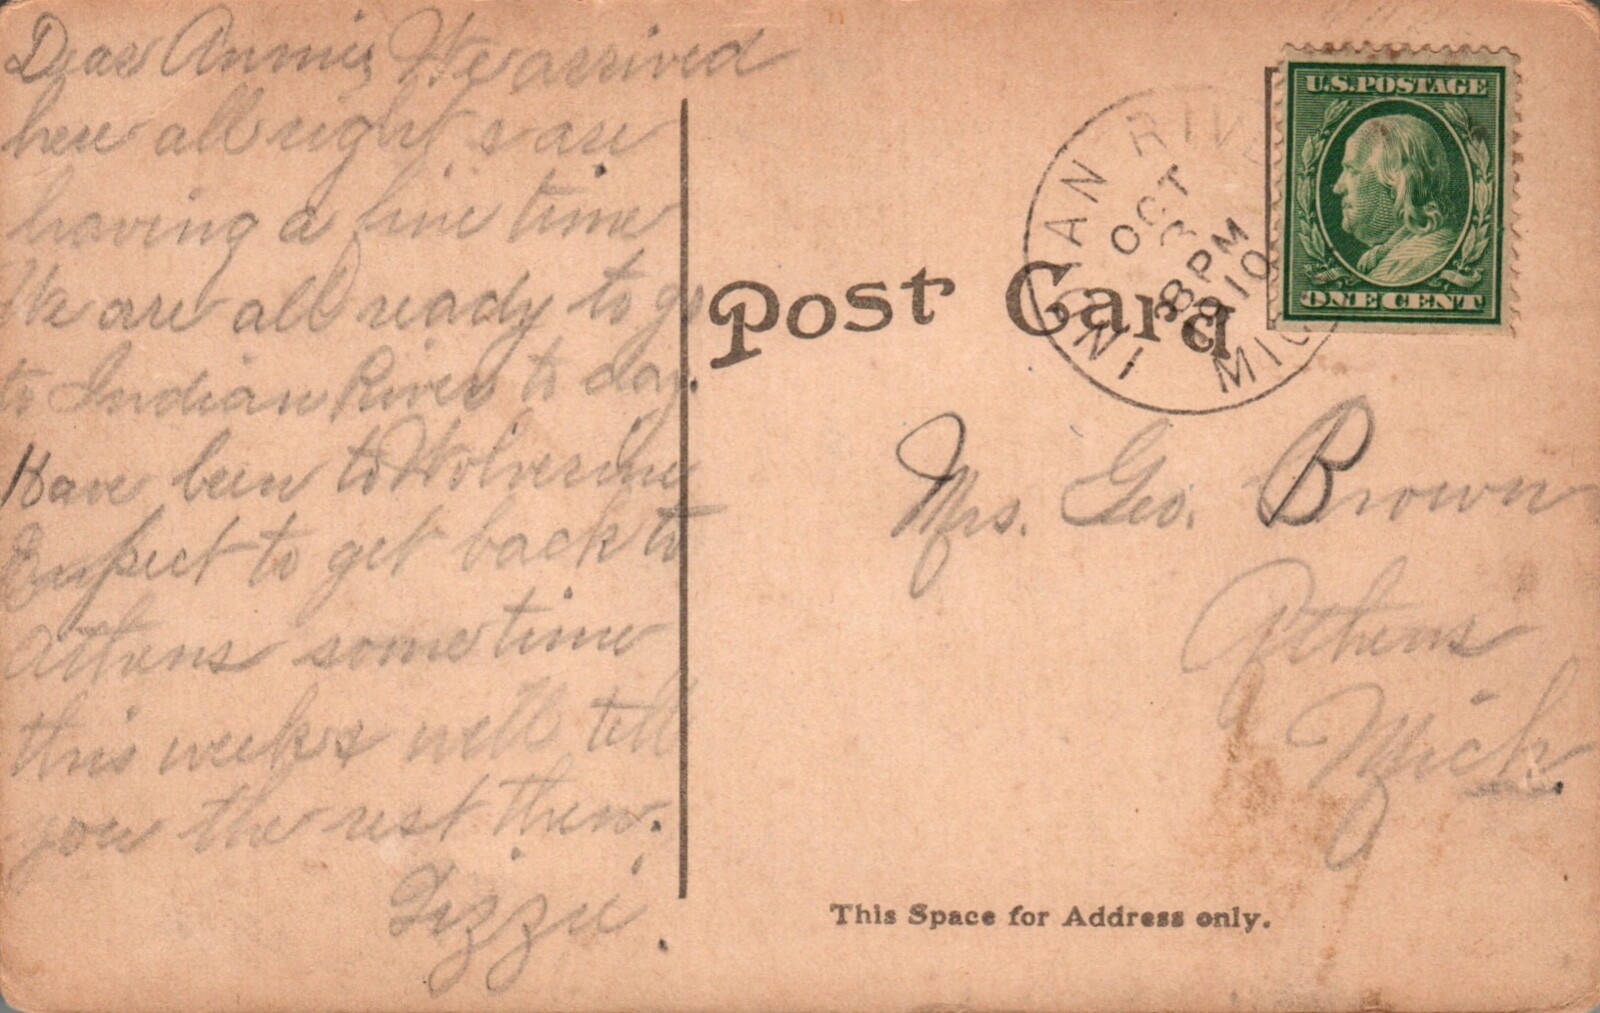 Dear Annie, We arrived
here all right & are
having a fine time
We are all ready to go
to Indian River to day.
Have been to Wolverine
Expect to get back to
Athens some time
this week & will tell
you the rest then.
Lizzie.
Post Card
INDIAN RIVER
OCT
3
8 PM
1910
MICH
U.S. POSTAGE
ONE CENT
Mrs. Geo. Brown
Athens
Mich.
This Space for Address only.